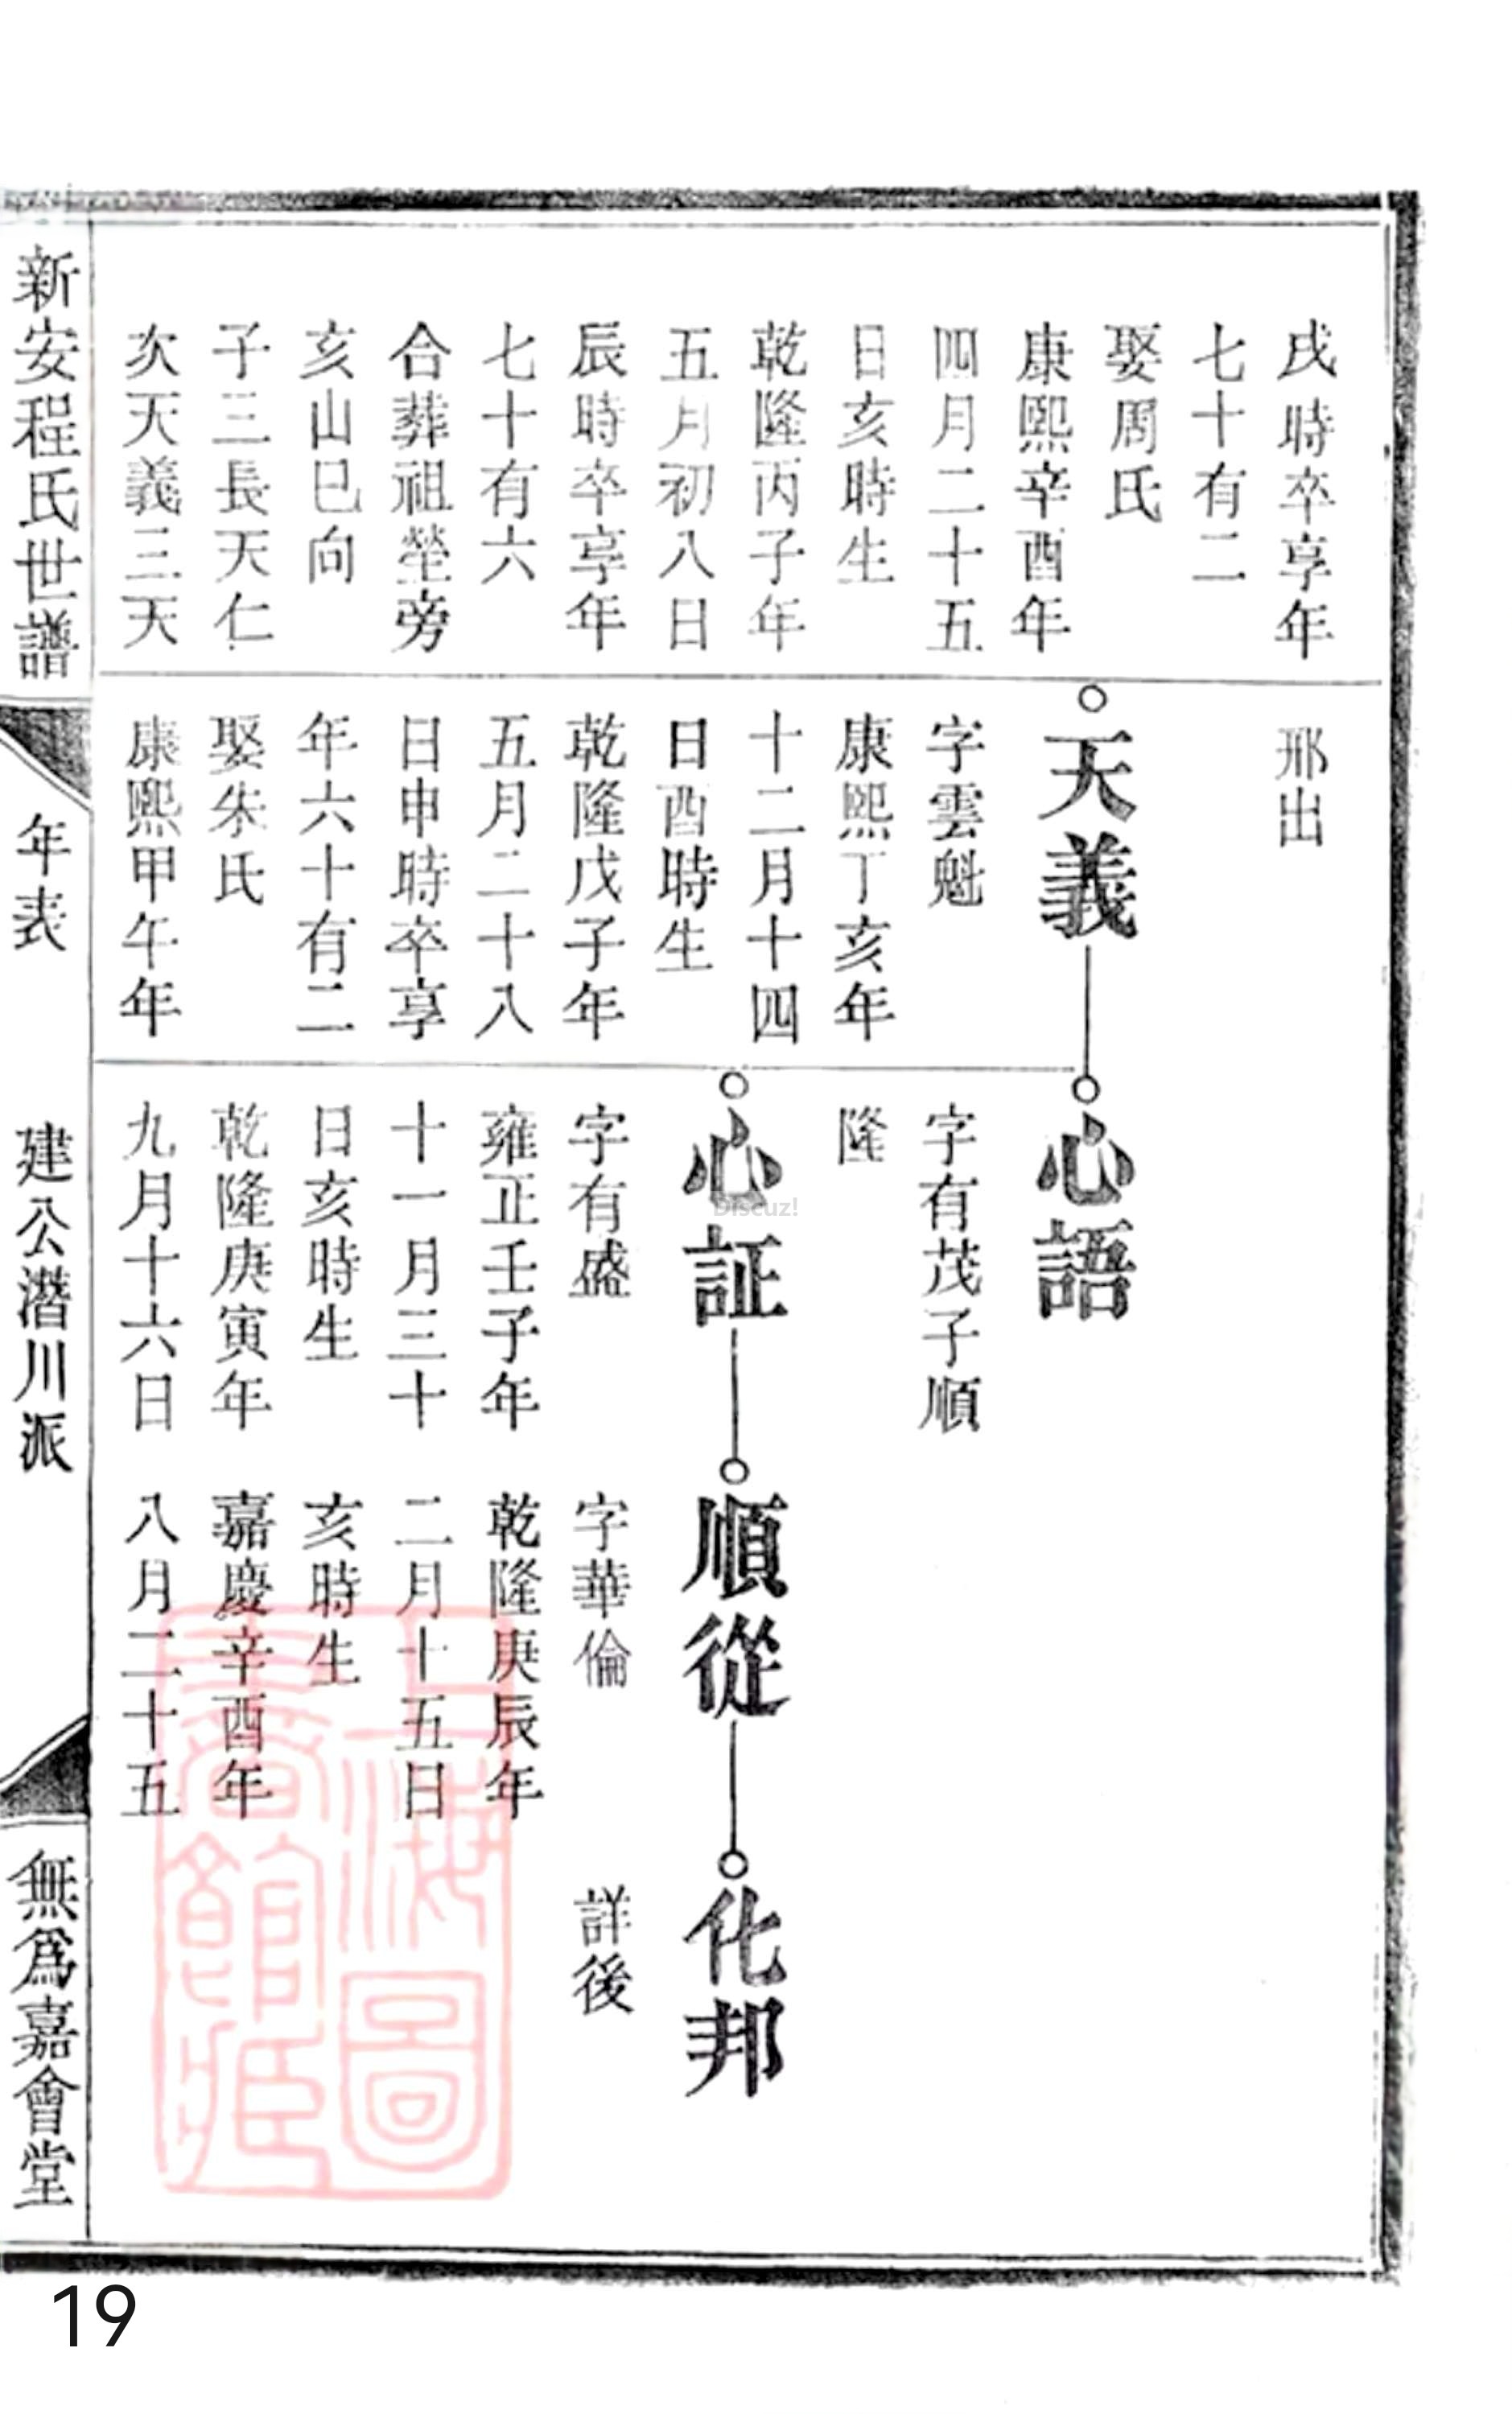 戌時卒享年
七十有二
娶周氏
康熙辛酉年
四月二十五
日亥時生
乾隆丙子年
五月初八日
辰時卒享年
七十有六
合葬祖塋旁
亥山巳向
子三長天仁
次天義三天
邢出
天義
字雲魁
康熙丁亥年
十二月十四
日酉時生
乾隆戊子年
五月二十八
日申時卒享
年六十有二
娶朱氏
康熙甲午年
心語
字有茂子順
隆
心証
字有盛
雍正壬子年
十一月三十
日亥時生
乾隆庚寅年
九月十六日
順從
字華倫
乾隆庚辰年
二月十五日
亥時生
嘉慶辛酉年
八月二十五
化邦
詳後
新安程氏世譜
年表
建公潛川派
無為嘉會堂
上海圖
書館藏
Discuz!
19